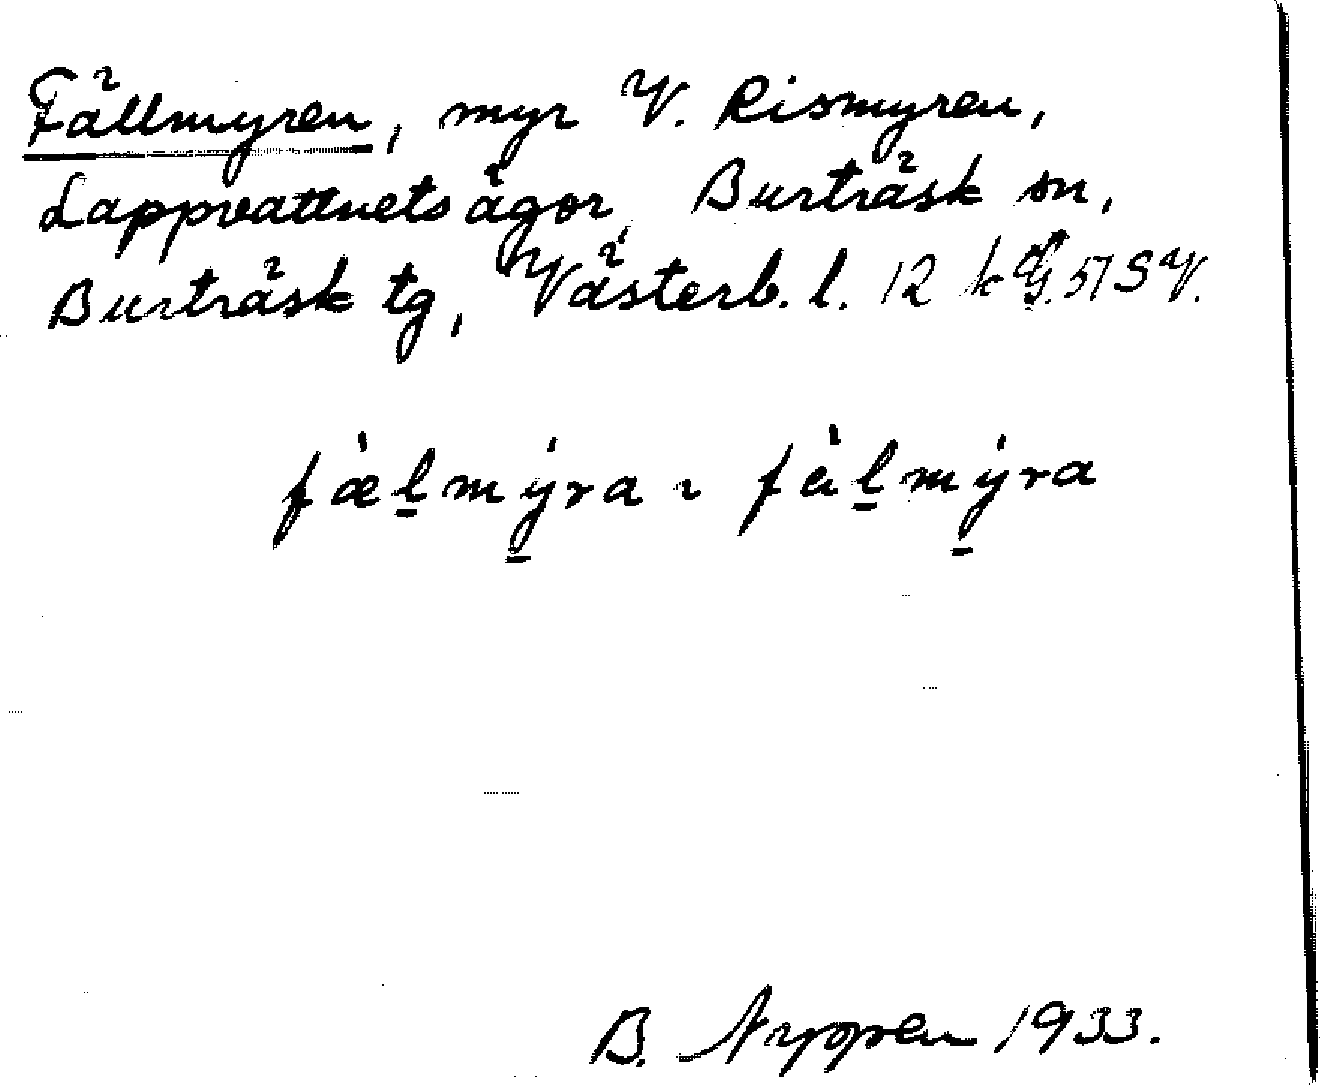 Fällmyren, myr V. Rismyren,
Lappvattnets ägor, Burträsk sn,
Burträsk tg, Västerb. l. 12 k G. 51 S V.
fæl̠mýra ~ fàl̠mýra
B. 1933.